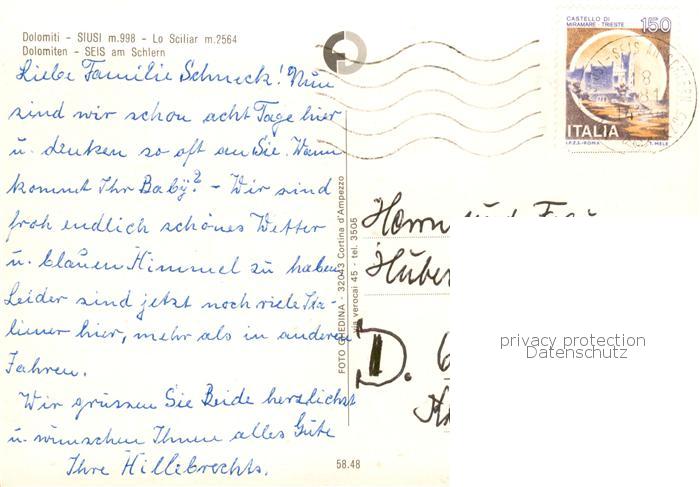 Dolomiti - SIUSI m.998 - Lo Sciliar m.2564
Dolomiten - SEIS am Schlern
Liebe Familie Schneck! Nun
sind wir schon acht Tage hier
u. denken so oft an Sie. Wann
kommt Ihr Baby? - Wir sind
froh endlich schönes Wetter
u. blauen Himmel zu haben
Leider sind jetzt noch viele Ita-
liener hier, mehr als in anderen
Jahren.
Wir grüssen Sie Beide herzlichst
u. wünschen Ihnen alles Gute
Ihre Hillebrechts.
FOTO GHEDINA - 32043 Cortina d'Ampezzo
via verocai 45 - tel. 3505
58.48
CASTELLO DI
MIRAMARE - TRIESTE
150
ITALIA
I.P.Z.S. - ROMA T. MELE
18
81
Herrn und
Huber
D. 6
privacy protection
Datenschutz